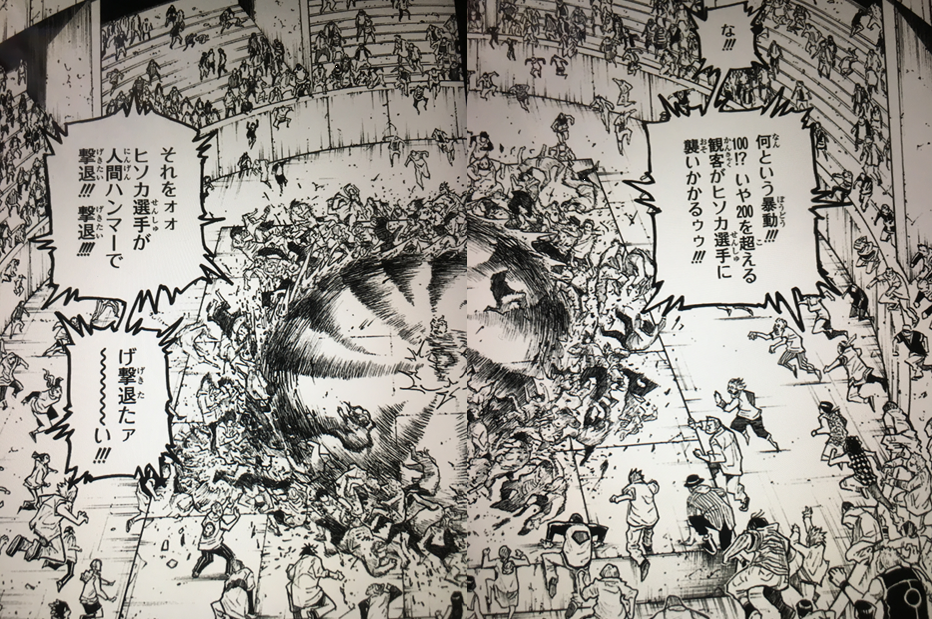 な!!!
何という暴動!!!
100!? いや200を超える
観客がヒソカ選手に
襲いかかるゥゥ!!!
それをォォ
ヒソカ選手が
人間ハンマーで
撃退!!! 撃退!!!!
げ撃退たァ
〜〜〜〜い!!!